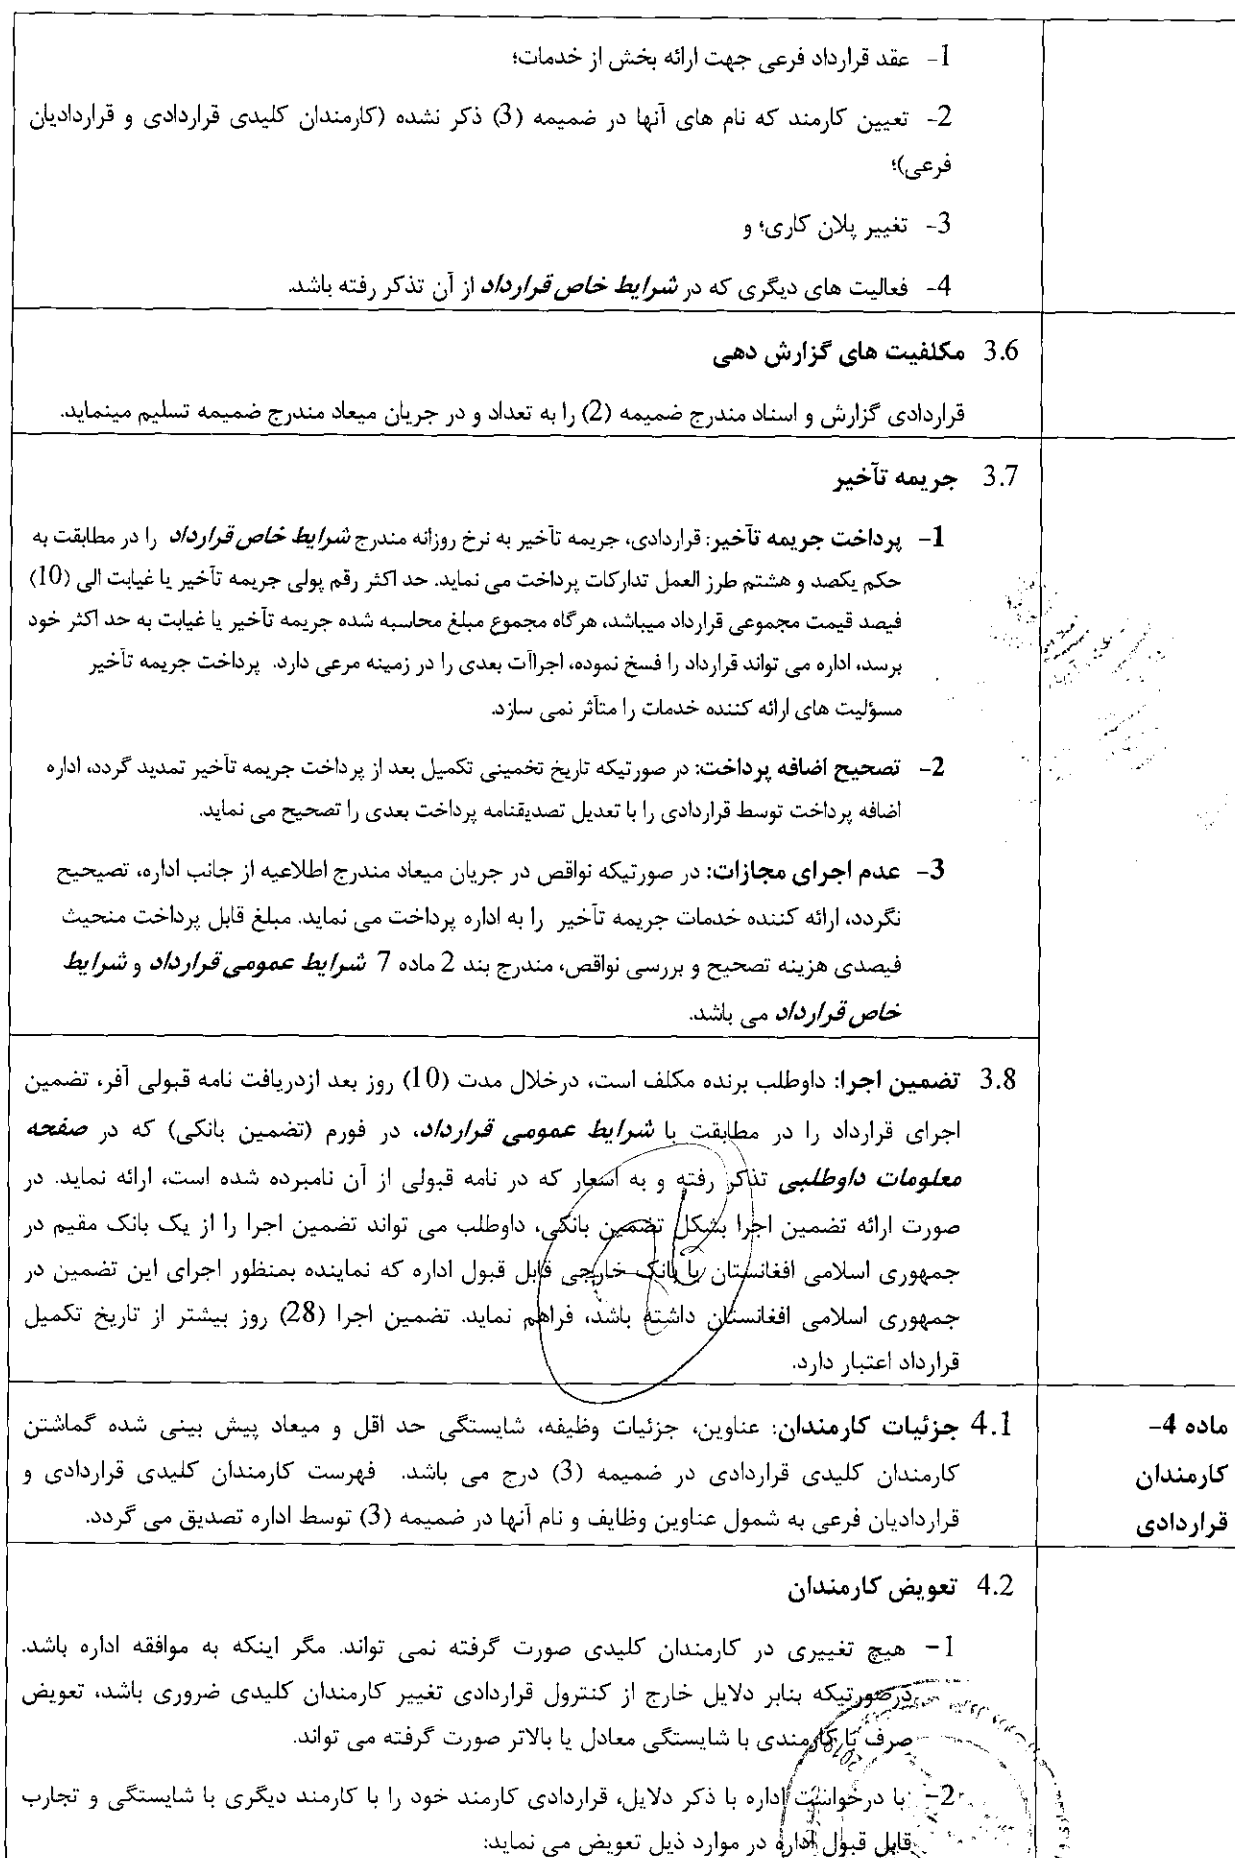 1- عقد قرارداد فرعی جهت ارائه بخش از خدمات؛
2- تعیین کارمند که نام های آنها در ضمیمه (3) ذکر نشده (کارمندان کلیدی قراردادی و قراردادیان
فرعی)؛
3- تغییر پلان کاری؛ و
4- فعالیت های دیگری که در شرایط خاص قرارداد از آن تذکر رفته باشد.
3.6 مکلفیت های گزارش دهی
قراردادی گزارش و اسناد مندرج ضمیمه (2) را به تعداد و در جریان میعاد مندرج ضمیمه تسلیم مینماید.
3.7 جریمه تآخیر
1- پرداخت جریمه تآخیر: قراردادی، جریمه تآخیر به نرخ روزانه مندرج شرایط خاص قرارداد را در مطابقت به
حکم یکصد و هشتم طرز العمل تدارکات پرداخت می نماید. حد اکثر رقم پولی جریمه تآخیر یا غیابت الی (10)
فیصد قیمت مجموعی قرارداد میباشد، هرگاه مجموع مبلغ محاسبه شده جریمه تآخیر یا غیابت به حد اکثر خود
برسد، اداره می تواند قرارداد را فسخ نموده، اجراآت بعدی را در زمینه مرعی دارد. پرداخت جریمه تآخیر
مسؤلیت های ارائه کننده خدمات را متآثر نمی سازد.
2- تصحیح اضافه پرداخت: در صورتیکه تاریخ تخمینی تکمیل بعد از پرداخت جریمه تآخیر تمدید گردد، اداره
اضافه پرداخت توسط قراردادی را با تعدیل تصدیقنامه پرداخت بعدی را تصحیح می نماید.
3- عدم اجرای مجازات: در صورتیکه نواقص در جریان میعاد مندرج اطلاعیه از جانب اداره، تصیحیح
نگردد، ارائه کننده خدمات جریمه تآخیر را به اداره پرداخت می نماید. مبلغ قابل پرداخت منحیث
فیصدی هزینه تصحیح و بررسی نواقص، مندرج بند 2 ماده 7 شرایط عمومی قرارداد و شرایط
خاص قرارداد می باشد.
3.8 تضمین اجرا: داوطلب برنده مکلف است، درخلال مدت (10) روز بعد ازدریافت نامه قبولی آفر، تضمین
اجرای قرارداد را در مطابقت با شرایط عمومی قرارداد، در فورم (تضمین بانکی) که در صفحه
معلومات داوطلبی تذکر رفته و به اسعار که در نامه قبولی از آن نامبرده شده است، ارائه نماید. در
صورت ارائه تضمین اجرا بشکل تضمین بانکی، داوطلب می تواند تضمین اجرا را از یک بانک مقیم در
جمهوری اسلامی افغانستان یا بانک خارجی قابل قبول اداره که نماینده بمنظور اجرای این تضمین در
جمهوری اسلامی افغانستان داشته باشد، فراهم نماید. تضمین اجرا (28) روز بیشتر از تاریخ تکمیل
قرارداد اعتبار دارد.
ماده 4-
کارمندان
قراردادی
4.1 جزئیات کارمندان: عناوین، جزئیات وظیفه، شایستگی حد اقل و میعاد پیش بینی شده گماشتن
کارمندان کلیدی قراردادی در ضمیمه (3) درج می باشد. فهرست کارمندان کلیدی قراردادی و
قراردادیان فرعی به شمول عناوین وظایف و نام آنها در ضمیمه (3) توسط اداره تصدیق می گردد.
4.2 تعویض کارمندان
1- هیچ تغییری در کارمندان کلیدی صورت گرفته نمی تواند. مگر اینکه به موافقه اداره باشد.
درصورتیکه بنابر دلایل خارج از کنترول قراردادی تغییر کارمندان کلیدی ضروری باشد، تعویض
صرف با کارمندی با شایستگی معادل یا بالاتر صورت گرفته می تواند.
2- با درخواست اداره با ذکر دلایل، قراردادی کارمند خود را با کارمند دیگری با شایستگی و تجارب
قابل قبول اداره در موارد ذیل تعویض می نماید: